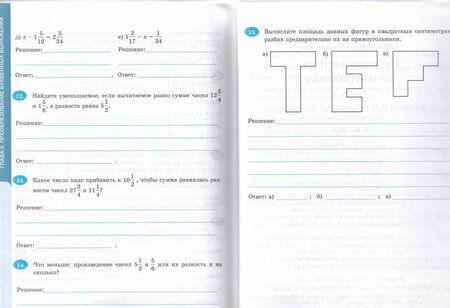 ГЛАВА II. ПРЕОБРАЗОВАНИЕ БУКВЕННЫХ ВЫРАЖЕНИЙ
д) x − 1 5/12 = 2 5/24
е) 1 2/17 − x = 1/34
Решение:
Решение:
Ответ:
Ответ:
12. Найдите уменьшаемое, если вычитаемое равно сумме чисел 12 3/4
и 1 5/8, а разность равна 5 1/2.
Решение:
Ответ:
13. Какое число надо прибавить к 10 1/2, чтобы сумма равнялась раз-
ности чисел 27 3/4 и 11 1/4?
Решение:
Ответ:
14. Что меньше: произведение чисел 5 1/3 и 5/6 или их разность и на
сколько?
15. Вычислите площадь данных фигур в квадратных сантиметрах,
разбив предварительно их на прямоугольники.
а) б) в)
Решение:
Ответ: а) ; б) ; в)